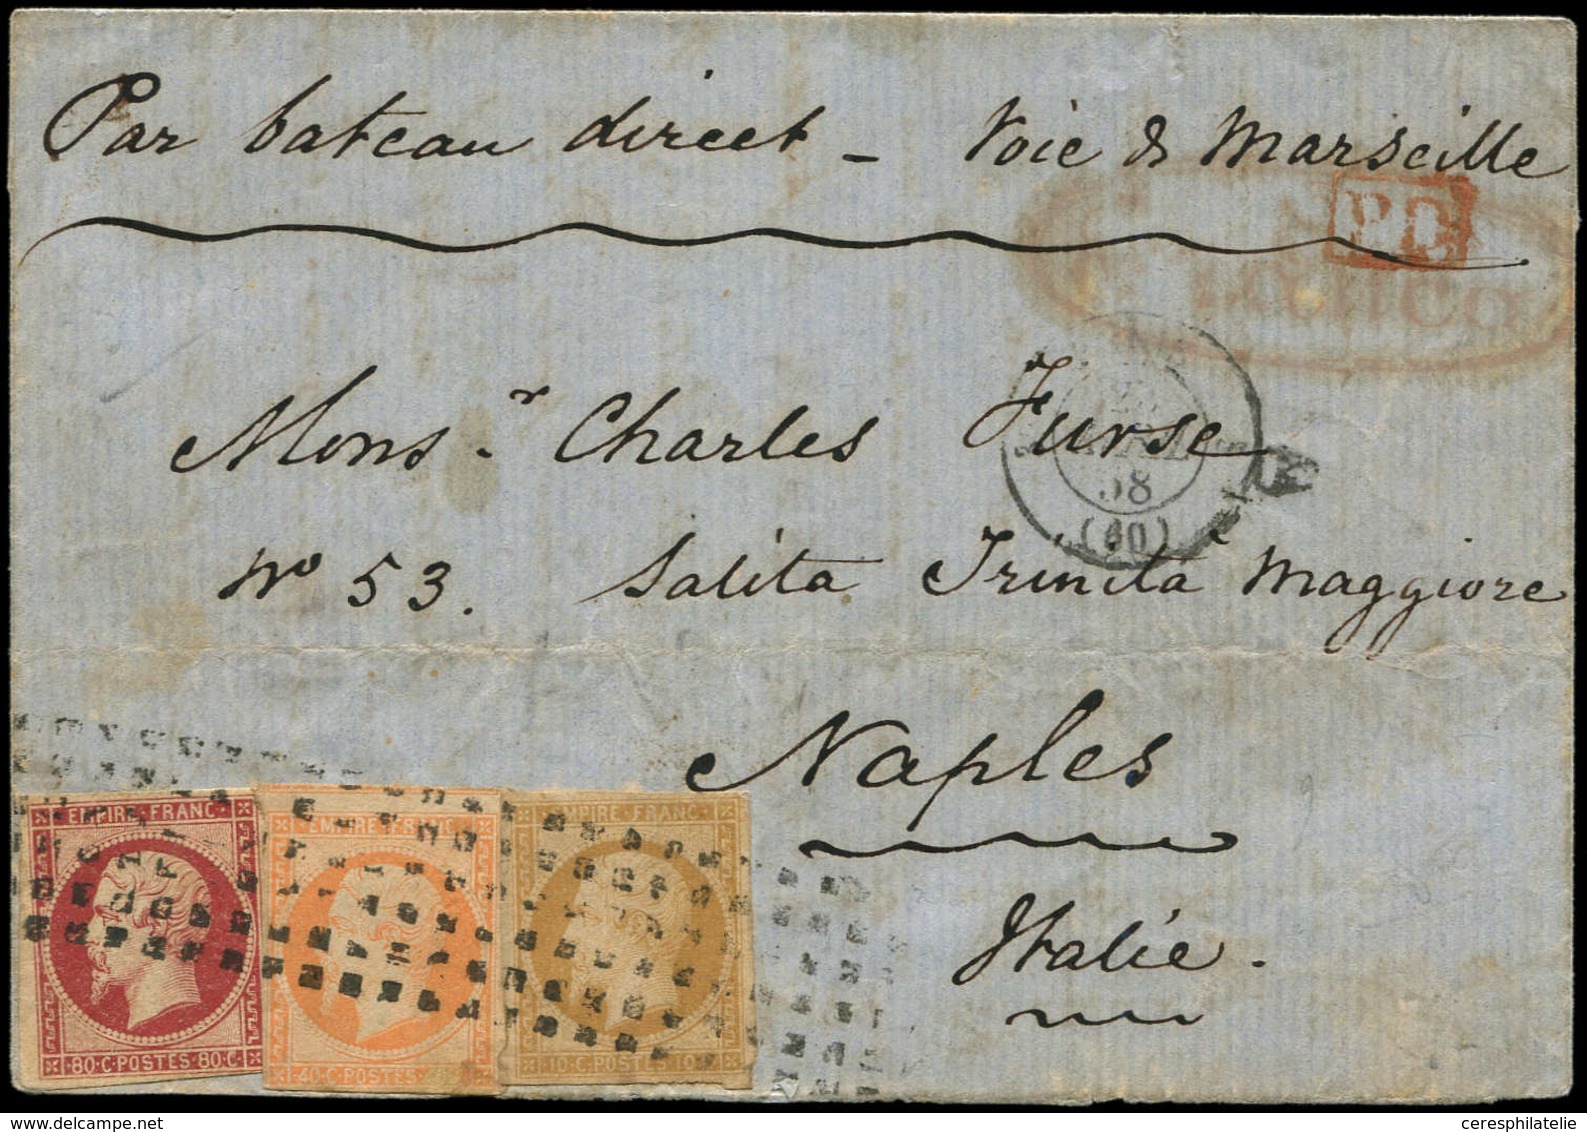 Par bateau direct - Voie de Marseille
P.D.
Franca
Mons.r Charles Furse
58
(60)
No 53. Salita Trinità Maggiore
Naples
Italie.
EMPIRE FRANC
80·C·POSTES·80·C
EMPIRE·FRANC
40·C·POSTES
EMPIRE FRANC
10·C·POSTES 10·C
ceresphilatelie